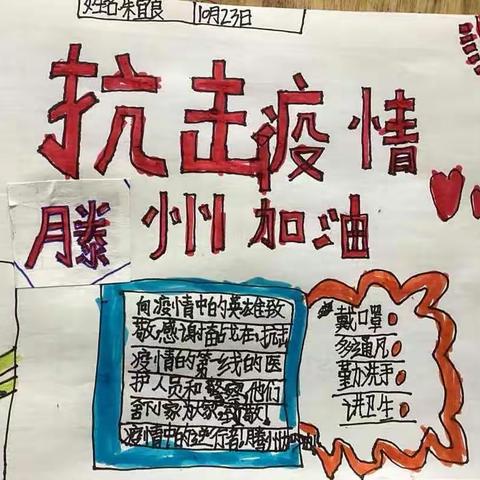 姓名:朱宜良 10月23日
抗击疫情
滕州加油
向疫情中的英雄致
敬感谢奋战在抗击
疫情的第一线的医
护人员和警察他们
舍小家为大家致敬
疫情中的逆行者!滕州加油
戴口罩
多通风
勤洗手
讲卫生